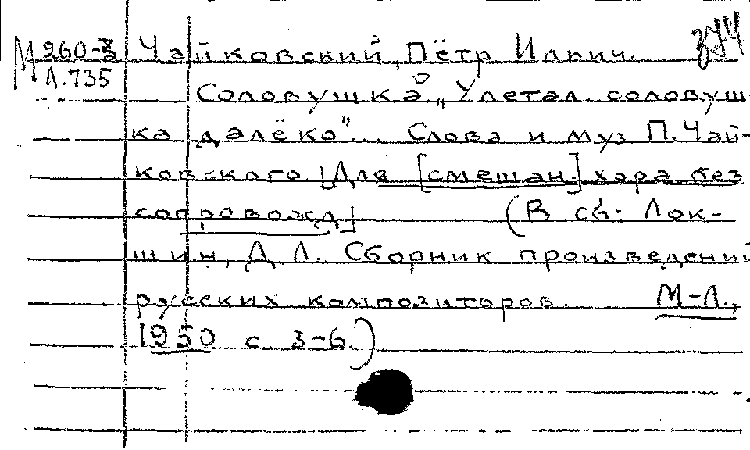 М 260-3 Чайковский, Пётр Ильич.
Л.735
Соловушка „Улетал соловуш-
ка далёко"... Слова и муз П. Чай-
ковского [Для [смешан.] хора без
сопровожд] (В сб: Лок-
шин, Д Л. Сборник произведений
русских композиторов М-Л.,
1950 с 3-6.)